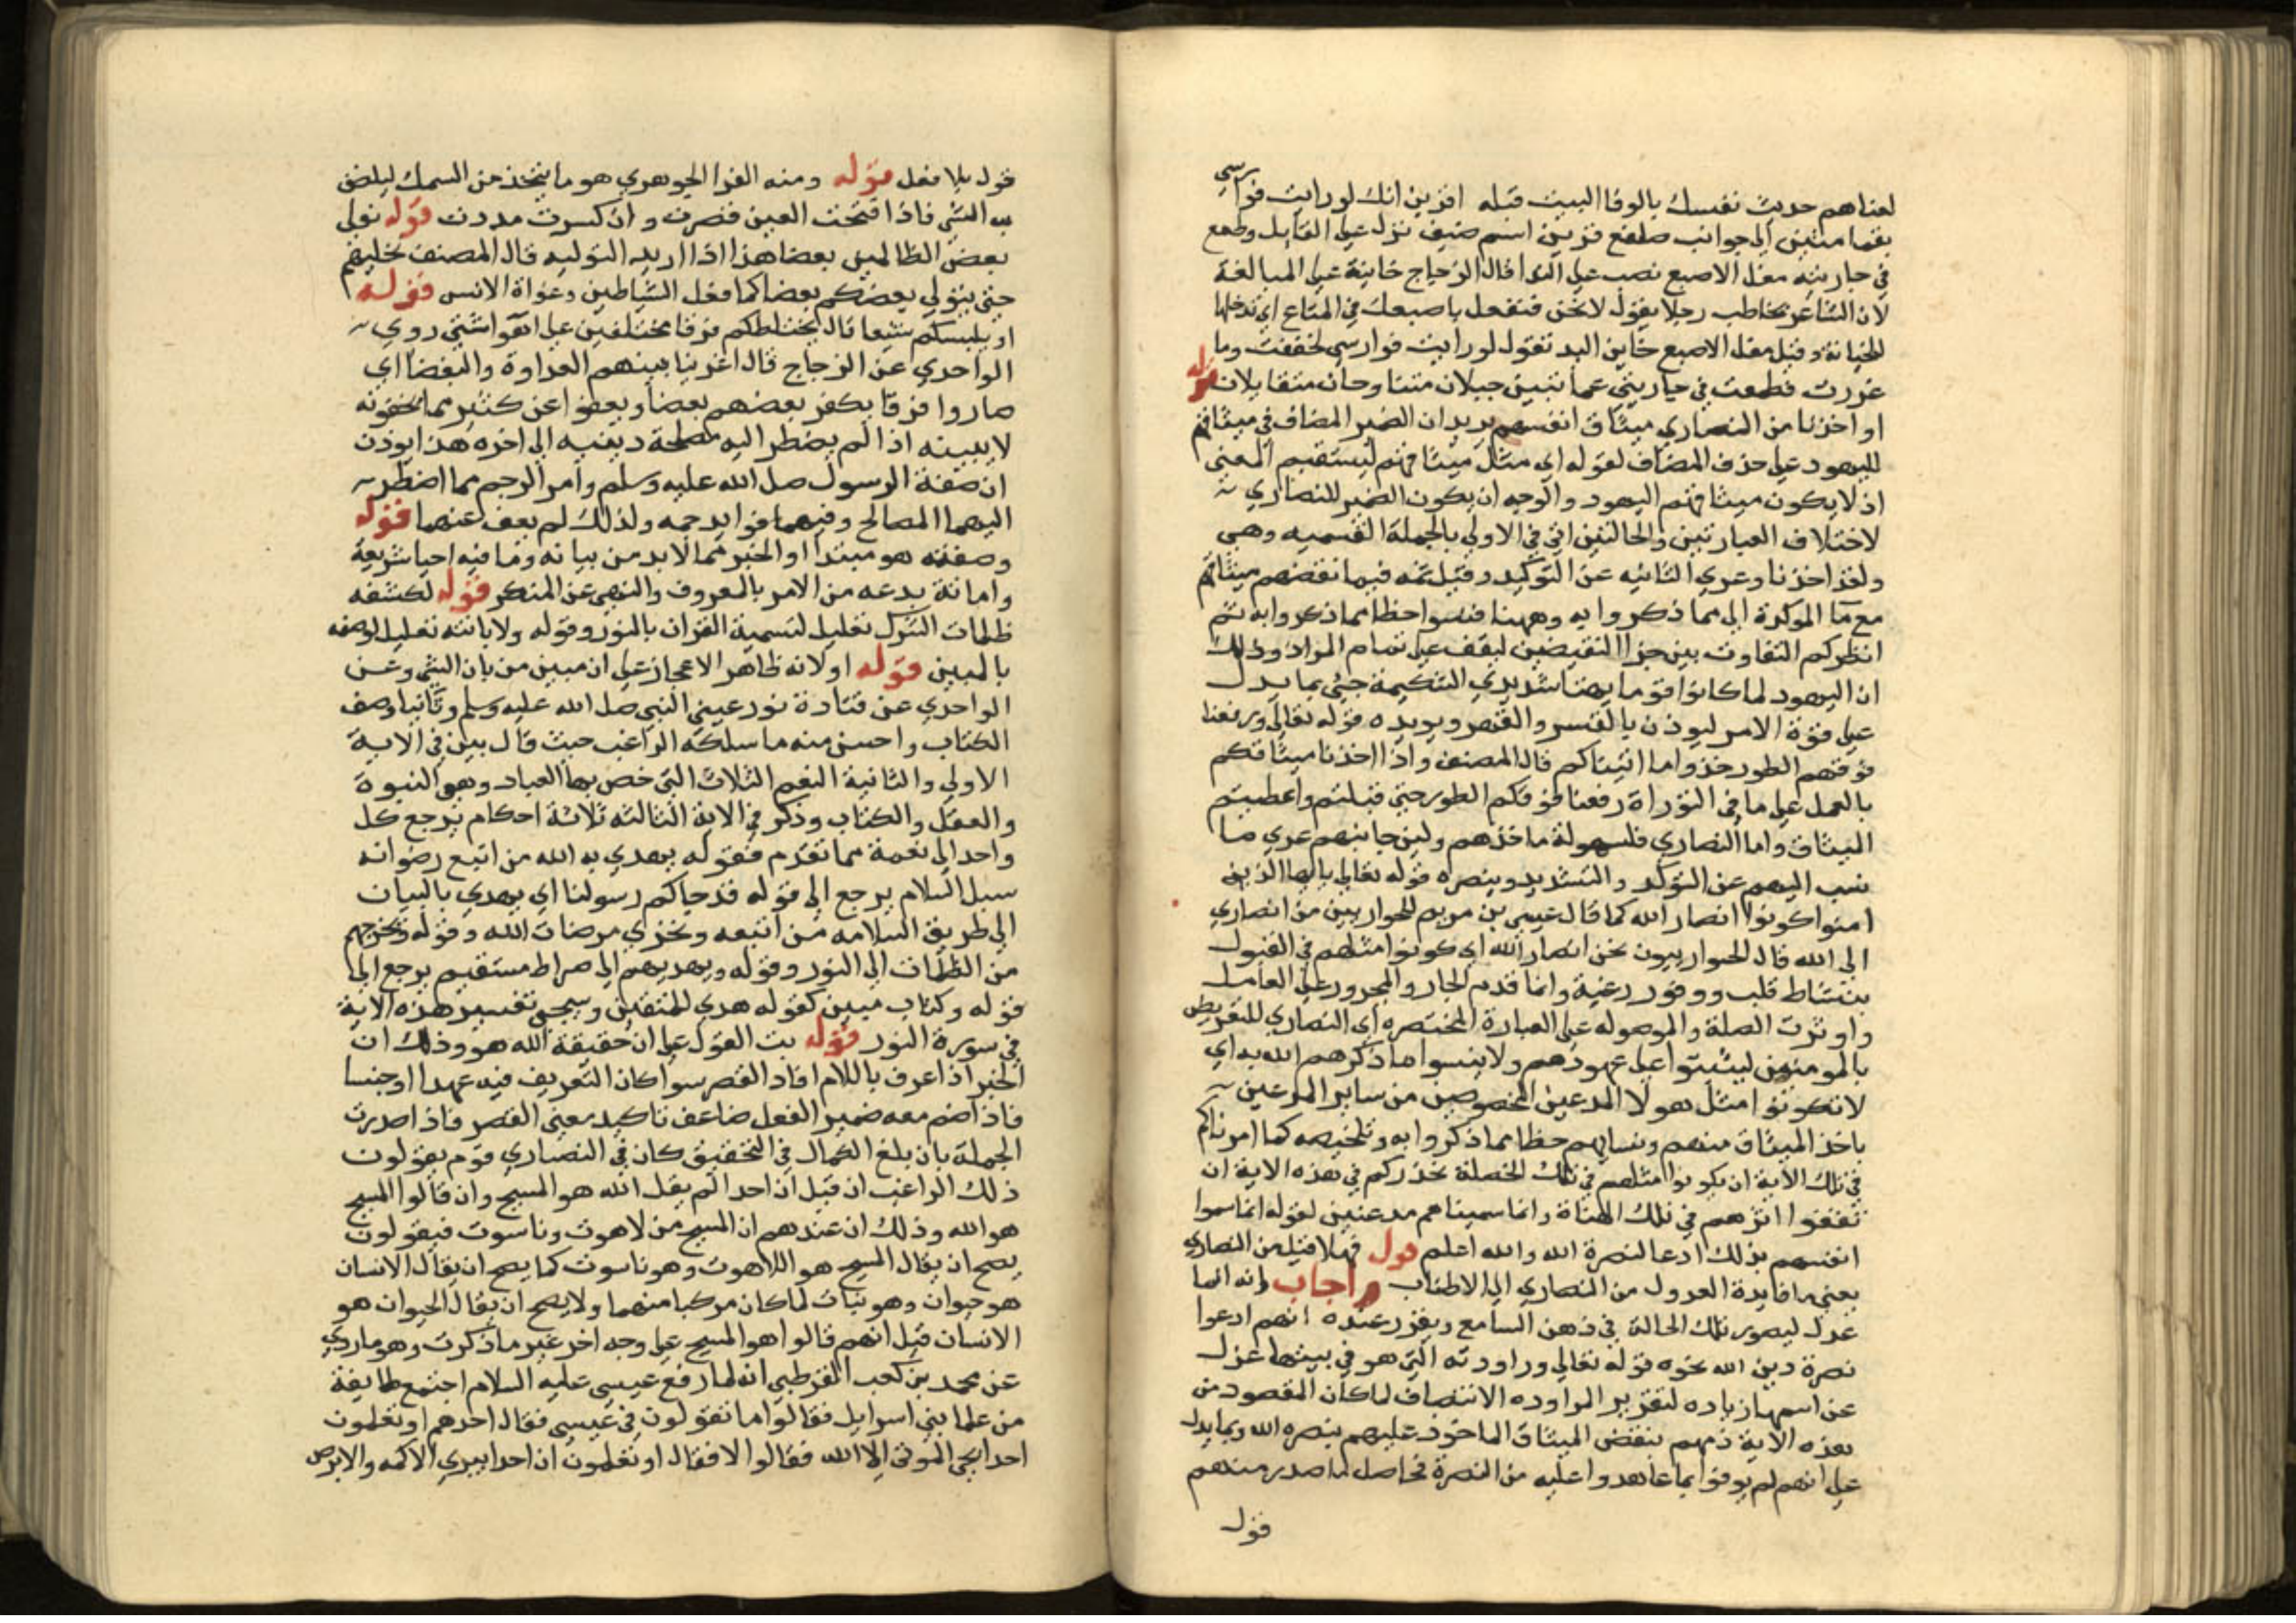 لعناهم حديث نفسك بالوفا البيت قبله اقرين انك لو رايت فوارسي
بقما متين الى جوانب صلفع قرين اسم ضيف نزل على القايل وطمع
في جاريته مغل الاصبع نصب على الندا قال الزجاج خاينة على المبالغة
لان الشاعر يخاطب رجلا يقول لا تخن فتغل باصبعك في المتاع اي تدخلها
للخيانة وقيل مغل الاصبع خاين اليد تقول لو رايت فوارسي لخففت وما
غررت فطمعت في جاريتي عما تبين جبلان متناوحان متقابلان قوله
او اخذنا من النصارى ميثاق انفسهم يريد ان الضمير المضاف في ميثاقهم
لليهود على حذف المضاف لقوله اي مثل ميثاقهم ليستقيم المعنى
اذ لا يكون ميثاقهم اليهود والوجه ان يكون الضمير للنصارى
لاختلاف العبارتين والحالتين اتى في الاولى بالجملة القسميه وهي
ولقد اخذنا وعرى الثانيه عن التوكيد وقيل ثمه فبما نقضهم ميثاقهم
مع ما الموكدة الى مما ذكروا به وههنا فنسوا حظا مما ذكروا به ثم
انظر كم التفاوت بين جزا النقيضين ليقف على تمام المراد وذلك
ان اليهود لما كانوا قوما بهتا شديدي الشكيمة جيء بما يدل
على قوة الامر ليوذن بالقسر والقصر ويويده قوله تعالى ورفعنا
فوقهم الطور خذوا ما اتيناكم قال المصنف واذ اخذنا ميثاقكم
بالعمل على ما في التوراة ورفعنا فوقكم الطور حتى قبلتم واعطيتم
الميثاق واما النصارى فلسهولة ماخذهم ولين جانبهم عرى ما
نسب اليهم عن التوكد والتشديد وينصره قوله تعالى يا ايها الذين
امنوا كونوا انصار الله كما قال عيسى بن مريم للحواريين من انصاري
الى الله قال الحواريون نحن انصار الله اي كونوا مثلهم في القبول
بنشاط قلب ووفور رغبة وانما قدم الجار والمجرور على العامل
واوثرت الصلة والموصوله على العبارة المختصره اي النصارى للتعريض
بالمومنين ليثبتوا على عهودهم ولا ينسوا ما ذكرهم الله به اي
لا تكونوا مثل هولا المدعين المخصوصين من ساير المدعين
باخذ الميثاق منهم ونسيانهم حظا مما ذكروا به وتلخيصه كما امرناكم
في تلك الاية ان يكونوا مثلهم في تلك الخصلة نحذركم في هذه الاية ان
تقفوا اثرهم في تلك الهناة وانما سميناهم مدعنين لقوله انما سموا
انفسهم بذلك ادعا لنصرة الله والله اعلم قول فهلا قيل من النصارى
يعني ما فايدة العدول من النصارى الى الاطناب واجاب وانه انما
عدل ليصور تلك الحالة في ذهن السامع ويقرر عنده انهم ادعوا
نصرة دين الله نحوه قوله تعالى وراودته التي هو في بيتها عدل
عن اسمها زياده لتقرير المراوده الانتصاف لما كان المقصود من
هذه الاية ذمهم بنقض الميثاق الماخوذ عليهم بنصره الله ومما يدل
على انهم لم يوفوا بما عاهدوا عليه من النصرة فحاصل ما صدر منهم
قول
قول بلا فعل قوله ومنه الغرا الجوهري هو ما يتخذ من السمك ليلصق
به الشي فاذا فتحت العين قصرت وان كسرت مددت قوله نولي
بعض الظالمين بعضا هذا اذا اريد التوليه قال المصنف نخليهم
حتى يتولي بعضكم بعضا كما فعل الشياطين وغواة الانس قوله
او يلبسكم شيعا قال يختلطكم فرقا مختلفين على اهوا شتى روى
الواحدي عن الزجاج قال اغرينا بينهم العداوة والبغضا اي
صاروا فرقا يكفر بعضهم بعضا ويعفو عن كثير مما تخفونه
لا يبينه اذا لم يضطر اليه مصلحة دينيه الى اخره هذا يوذن
ان صفة الرسول صلى الله عليه وسلم وامر الرجم مما اضطر
اليهما المصالح وفيهما فوايد جمه ولذلك لم يعف عنهما قوله
وصفته هو مبتدا او الخبر مما لا بد من بيانه وما فيه احيا شريعة
واماتة بدعه من الامر بالمعروف والنهي عن المنكر قوله لكشفه
ظلمات الشرك تعليل لتسمية القران بالنور وقوله ولابانته تعليل لوصفه
بالمبين قوله او لانه ظاهر الاعجاز على ان مبين من بان الشي وعن
الواحدي عن قتادة نور عيني النبي صلى الله عليه وسلم وثانيا وصف
الكتاب واحسن منه ما سلكه الراغب حيث قال بين في الاية
الاولى والثانية النعم الثلاث التي خص بها العباد وهو النبوة
والعقل والكتاب وذكر في الاية الثالثه ثلاثة احكام يرجع كل
واحد الى نعمة مما تقدم فقوله يهدي به الله من اتبع رضوانه
سبل السلام يرجع الى قوله قد جاكم رسولنا اي يهدي بالبيان
الى طريق السلامه من اتبعه وتحرى مرضات الله وقوله ويخرجهم
من الظلمات الى النور وقوله ويهديهم الى صراط مستقيم يرجع الى
قوله وكتاب مبين كقوله هدى للمتقين وسيجي تفسير هذه الاية
في سورة النور قوله بت القول على ان حقيقة الله هو وذلك ان
الخبر اذا عرف باللام افاد القصر سوا كان التعريف فيه عهدا او جنسا
فاذا ضم معه ضمير الفعل ضاعف تاكيد معنى القصر فاذا صدرت
الجملة بان بلغ الكمال في التحقيق كان في النصارى قوم يقولون
ذلك الراغب ان قيل ان احدا لم يقل الله هو المسيح وان قالوا المسيح
هو الله وذلك ان عندهم ان المسيح من لاهوت وناسوت فيقولون
يصح ان يقال المسيح هو اللاهوت وهو ناسوت كما يصح ان يقال الانسان
هو حيوان وهو نبات لما كان مركبا منهما ولا يصح ان يقال الحيوان هو
الانسان قيل انهم قالوا هو المسيح على وجه اخر غير ما ذكرت وهو ما روي
عن محمد بن كعب القرظبي انه لما رفع عيسى عليه السلام اجتمع طايفة
من علما بني اسرايل فقالوا ما تقولون في عيسى فقال احدهم او تعلمون
احدا يحي الموتى الا الله فقالوا لا فقال او تعلمون ان احدا يبري الاكمه والابرص